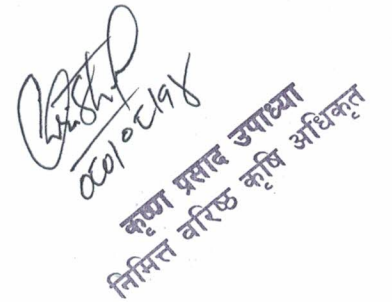 ०८०।०८।१४
कृष्ण प्रसाद उपाध्या
निमित्त वरिष्ठ कृषि अधिकृत